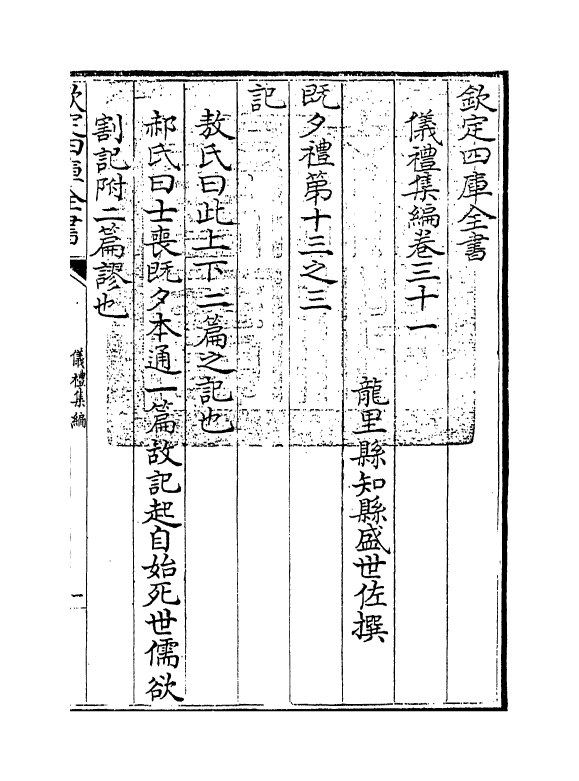 欽定四庫全書
儀禮集編卷三十一
龍里縣知縣盛世佐撰
既夕禮第十三之三
記
敖氏曰此上下二篇之記也
郝氏曰士喪既夕本通一篇故記起自始死世儒欲
割記附二篇謬也
欽定四庫全書
儀禮集編
一